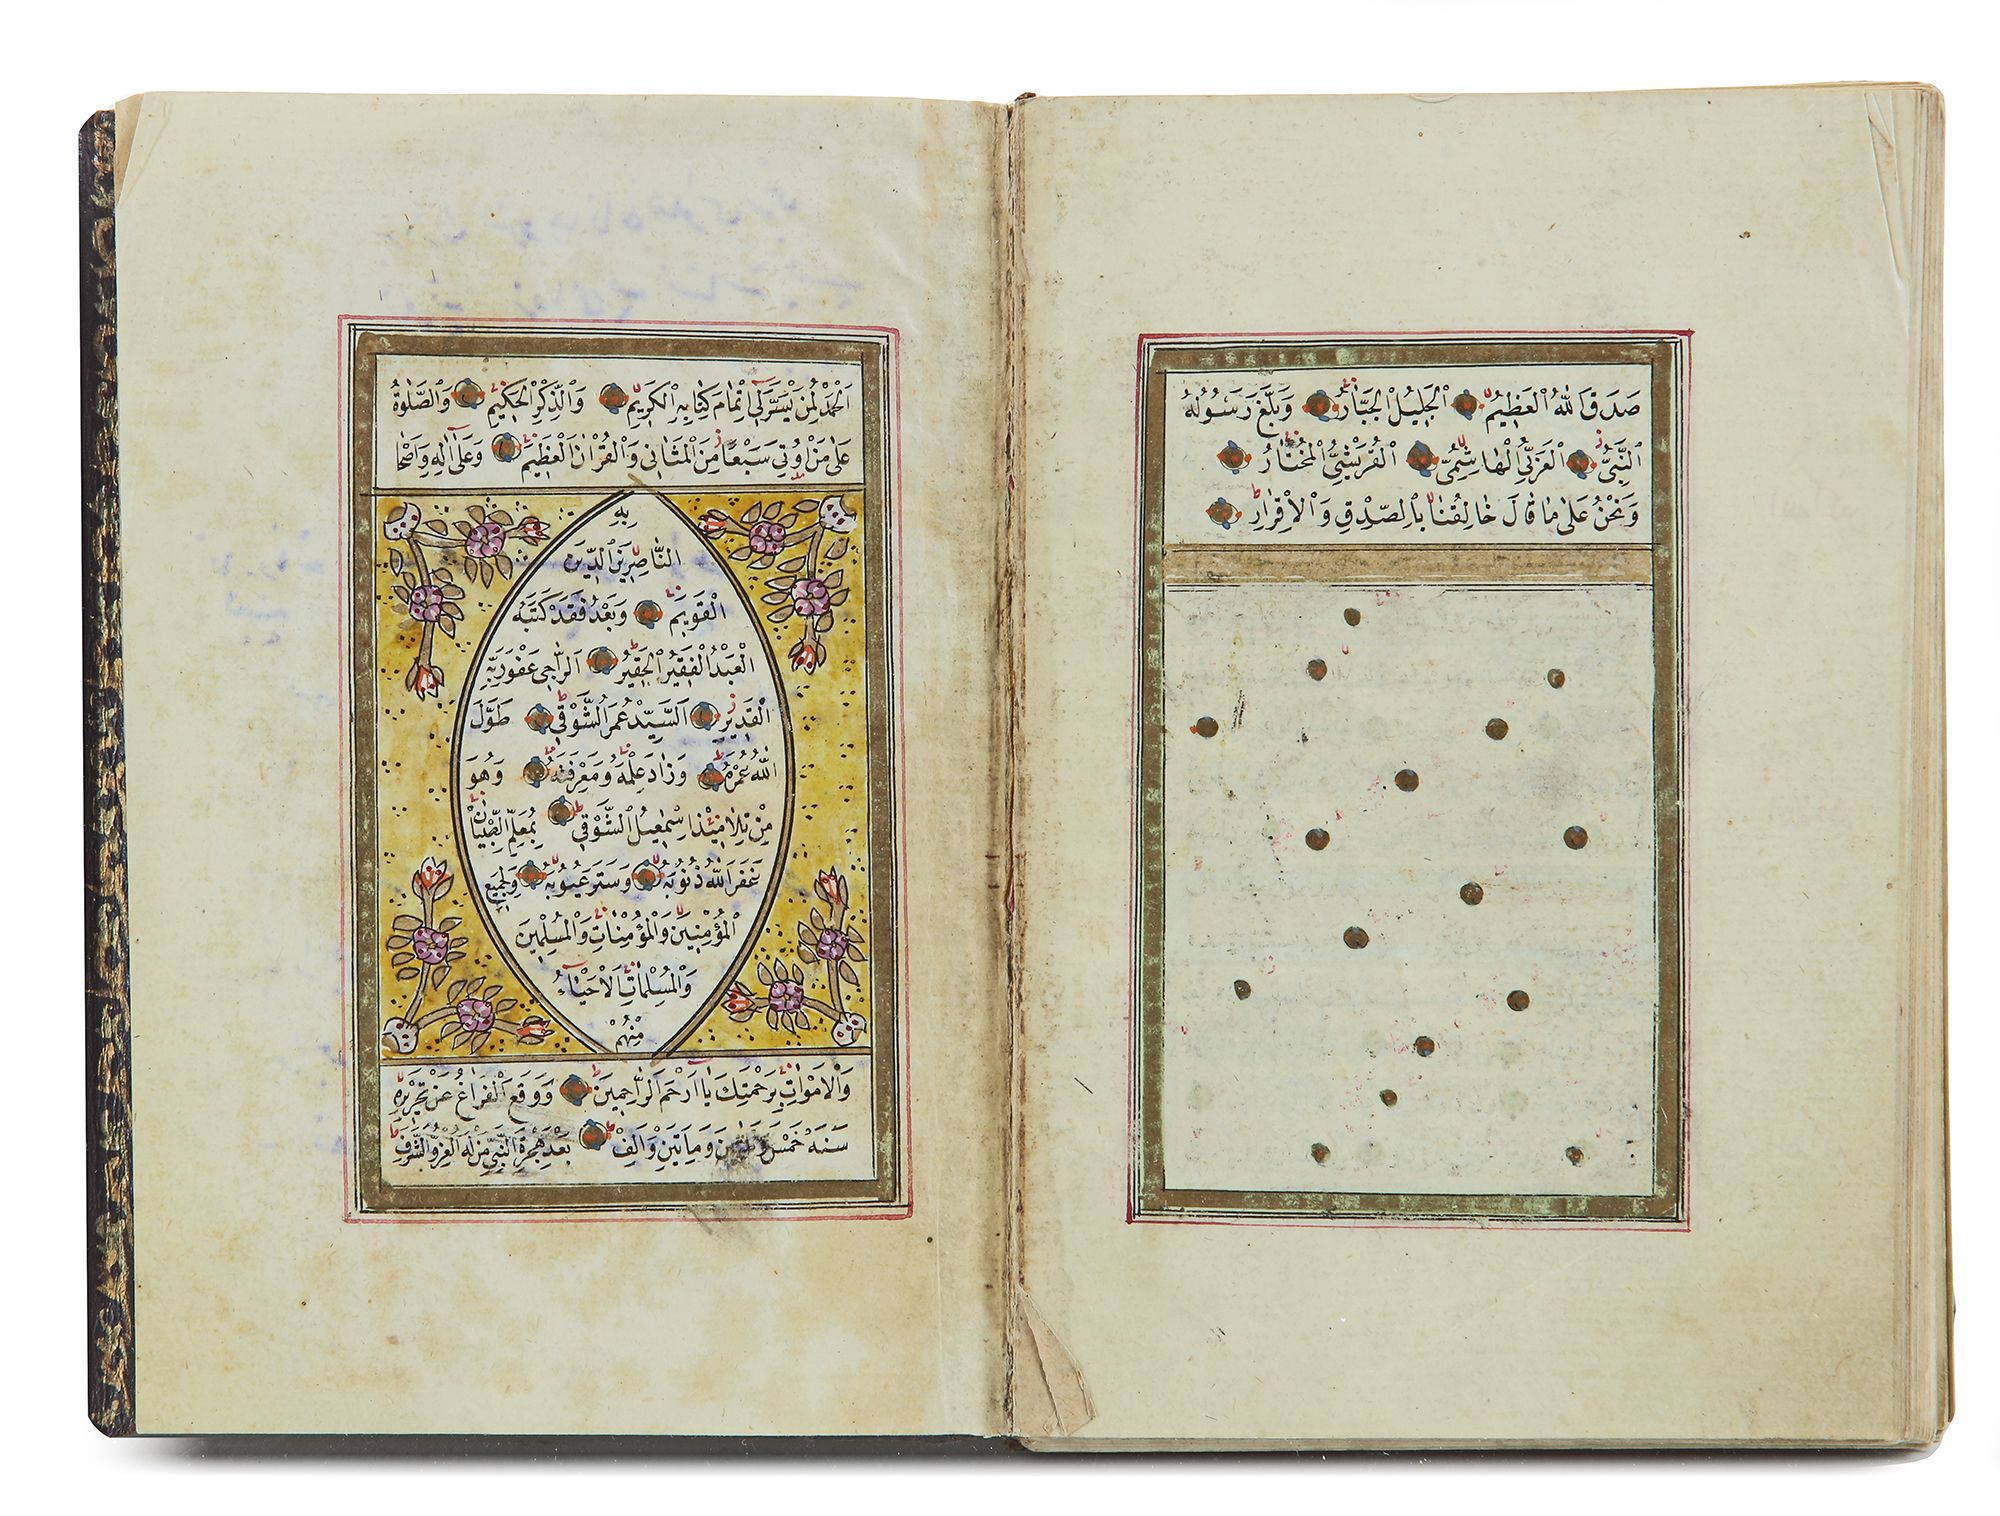 صَدَقَ اللّٰهُ الْعَظِيمُ الْجَلِيلُ الْجَبَّارُ وَبَلَّغَ رَسُولُهُ
النَّبِيُّ الْعَرَبِيُّ الْهَاشِمِيُّ الْقُرَيْشِيُّ الْمُخْتَارُ
وَنَحْنُ عَلٰى مَا قَالَ خَالِقُنَا بِالصِّدْقِ وَالْاِقْرَارِ
اَلْحَمْدُ لِمَنْ يَسَّرَ لِي اِتْمَامَ كِتَابِهِ الْكَرِيمِ وَالذِّكْرِ الْحَكِيمِ وَالصَّلٰوةُ
عَلٰى مَنْ اُوتِيَ سَبْعًا مِنَ الْمَثَانِي وَالْقُرْاٰنَ الْعَظِيمَ وَعَلٰى اٰلِهِ وَاَصْحَا
بِهِ
النَّاصِرِينَ الدِّينَ
الْقَوِيمَ وَبَعْدُ فَقَدْ كَتَبَهُ
الْعَبْدُ الْفَقِيرُ الْحَقِيرُ اَلرَّاجِي عَفْوَ رَبِّهِ
الْقَدِيرِ اَلسَّيِّدْ عُمَرُ الشَّوْقِي طَوَّلَ
اللّٰهُ عُمْرَهُ وَزَادَ عِلْمَهُ وَمَعْرِفَتَهُ وَهُوَ
مِنْ تَلَامِيذِ اِسْمٰعِيلُ الشَّوْقِي بِمُعَلِّمِ الصِّبْيَانْ
غَفَرَ اللّٰهُ ذُنُوبَهُ وَسَتَرَ عُيُوبَهُ وَلِجَمِيعِ
الْمُؤْمِنِينَ وَالْمُؤْمِنَاتِ وَالْمُسْلِمِينَ
وَالْمُسْلِمَاتِ اَلْاَحْيَاءُ
مِنْهُمْ
وَالْاَمْوَاتِ بِرَحْمَتِكَ يَا اَرْحَمَ الرَّاحِمِينَ وَوَقَعَ الْفَرَاغُ عَنْ تَحْرِيرِهِ
سَنَةَ خَمْسَ وَمِاَتَيْنِ وَاَلْفْ بَعْدَ هِجْرَةِ النَّبِيِّ مَنْ لَهُ الْعِزُّ وَالشَّرَفْ